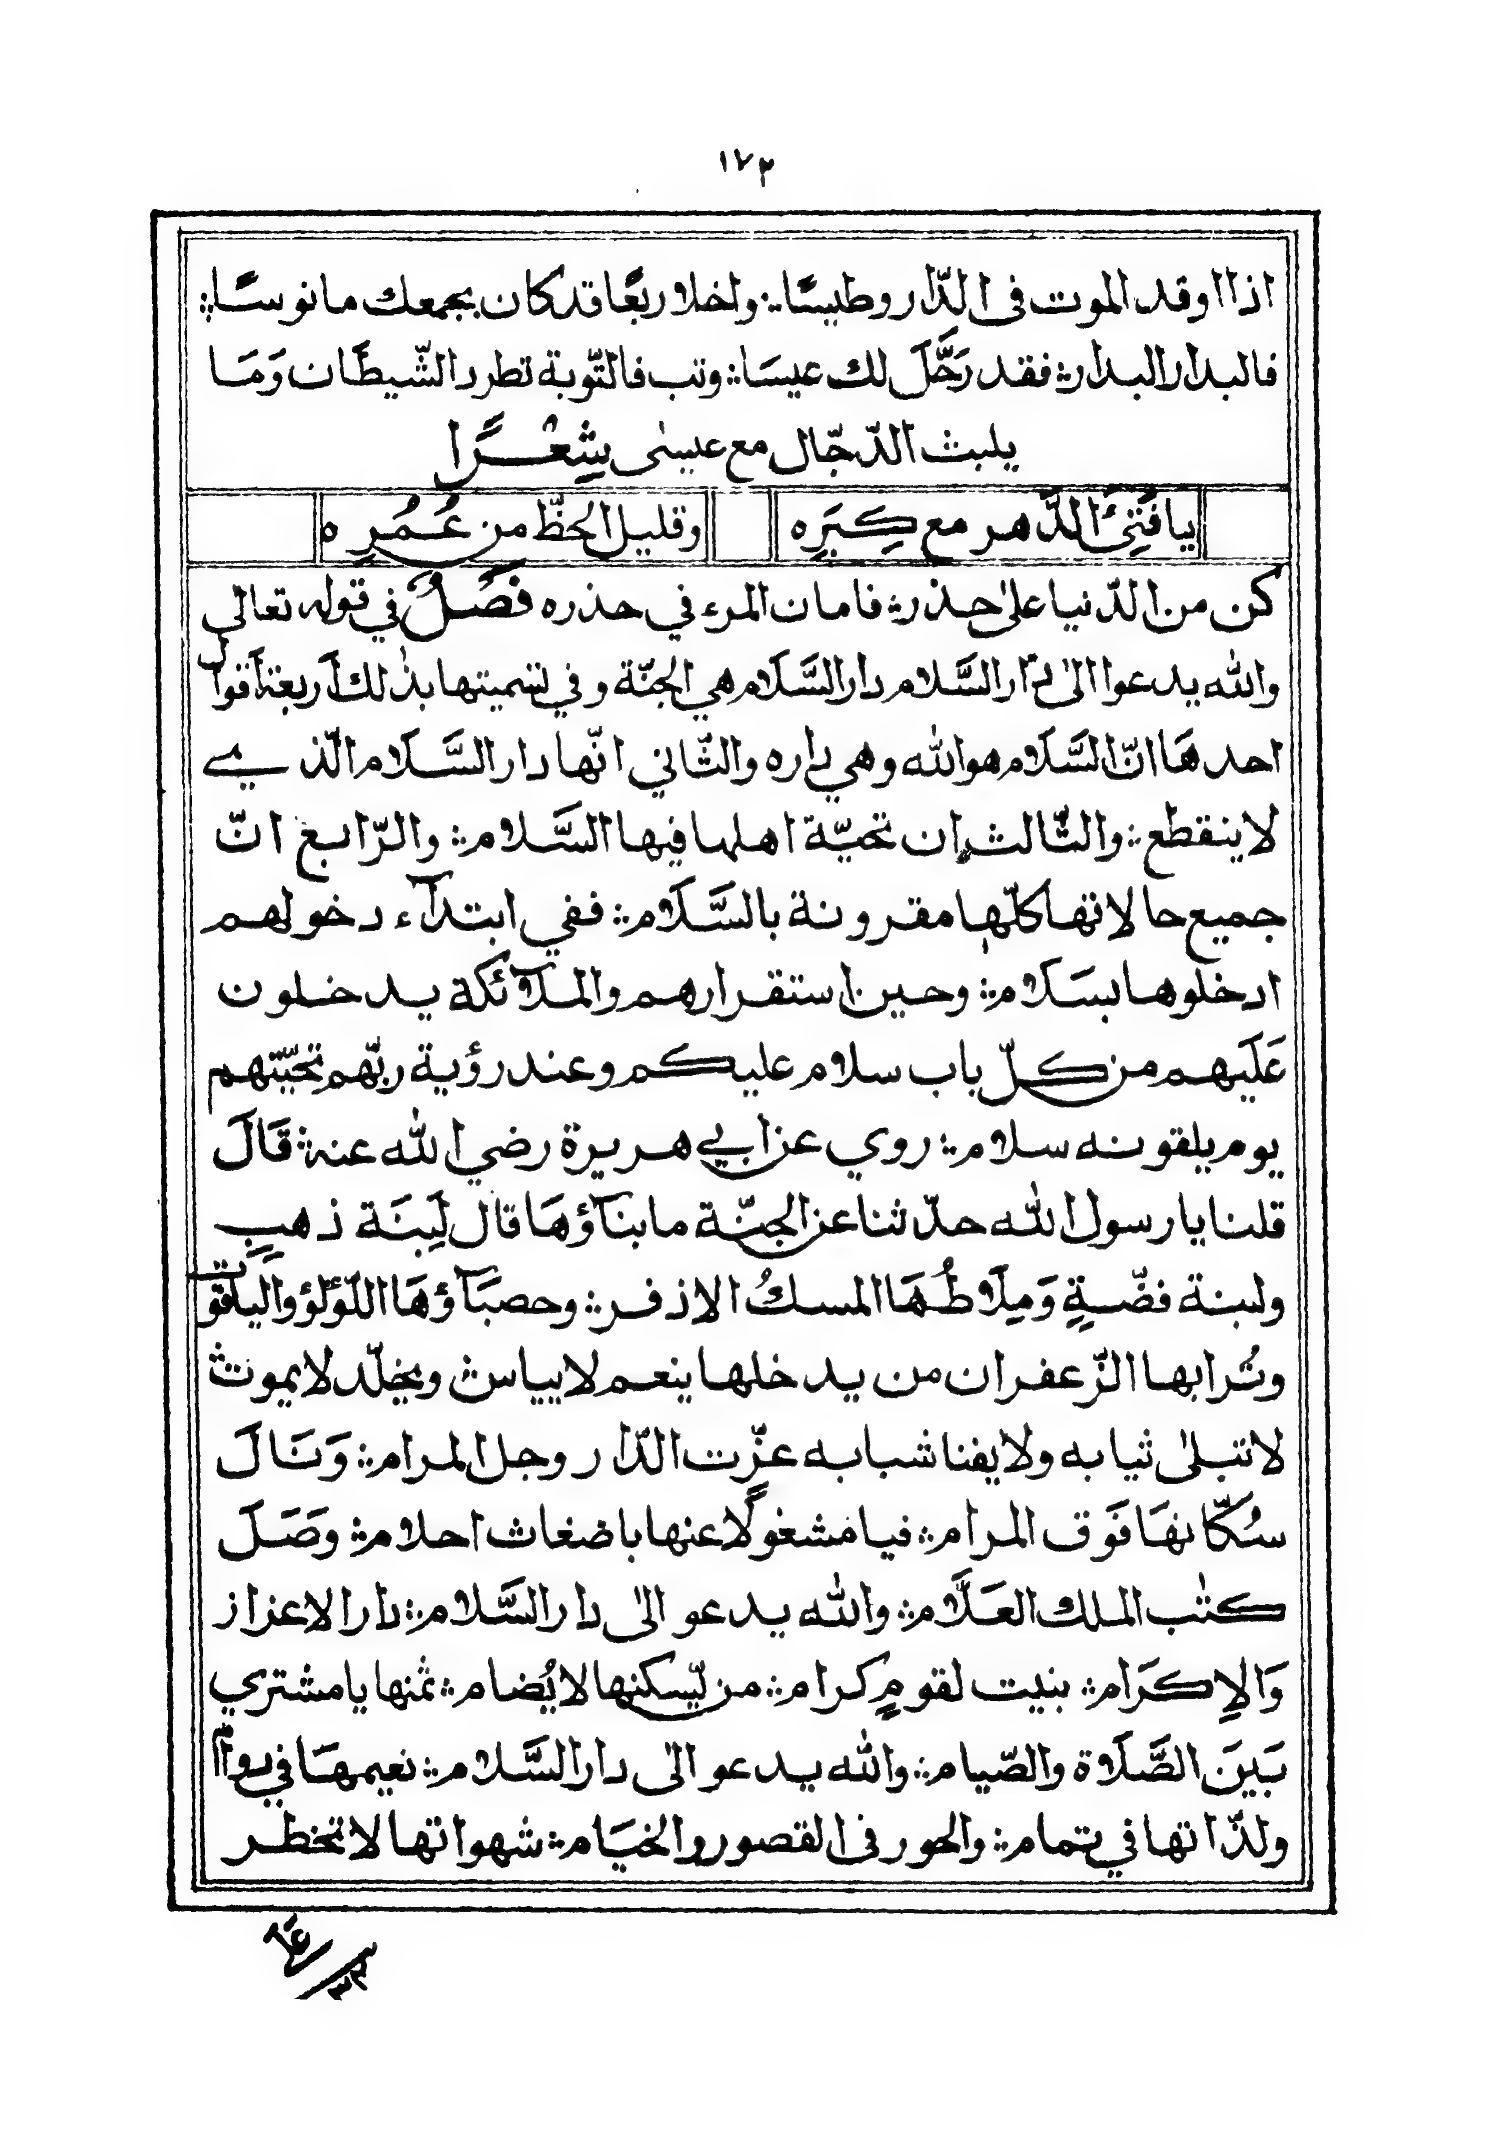 ١٧٢
اذا اوقد الموت فى الدّار وطيسًا؞ واخلا ربعًا قد كان بجمعك مانوسًا؞
فالبدار البدار؞ فقد رَحَّلَ لك عيسَا؞ وتب فالتّوبة تطرد الشّيطَان وَمَا
يلبث الدّجّال مع عيسٰى شِعْرًا
يا فتىً الدَّهر مع كِبَرِه وقليل الحظّ من عُمُرِه
كن من الدّنيا علىٰ حذر؞ فامان المرء في حذره فَصْلٌ في قوله تعالى
والله يدعوا الىٰ دَار السَّلام دار السَّلام هي الجنّة و في تسميتها بذٰلك أربعة أقوال
احدهَا انّ السَّلَام هو الله وهي داره والثّاني انّها دار السَّلَام الّذي
لاينقطع؞ والثّالث ان تحيّة اهلها فيها السَّلام؞ والرّابع انّ
جميع حالاتها كلّها مقرونة بالسَّلَام؞ ففي ابتدآء دخولهم
ادخلوها بسَلَام؞ وحين استقرارهم والملآئكة يدخلون
عَلَيهم من كلّ باب سلام عليكم وعند رؤية ربّهم تحيّتهم
يوم يلقونه سلام؞ روي عن ابي هريرة رضي الله عنه؞ قَالَ
قلنا يا رسول الله حدّثنا عن الجنّة ما بنآؤهَا قال لَبِنَة ذهبٍ
ولبنة فضّةٍ وَمِلَاطُهَا المسكُ الاذفر؞ وحصبَآؤهَا اللّؤلؤ والياقوت
وتُرابها الزّعفران من يدخلها ينعم لايياس؞ ويخلّد لايموت؞
لاتبلىٰ ثيابه ولا يفنا شبابه عزّت الدّار وجل المرام؞ وَنَالَ
سُكّانهَا فَوق المرام؞ فيا مشغولًا عنها باضغاث احلام؞ وصَلَ
كتٰب الملك العَلَّام؞ والله يدعو الىٰ دار السَّلام؞ دار الاعزاز
وَالاِكرَام؞ بنيت لقومٍ كرام؞ من يّسكنها لايُضام؞ ثمنها يا مشتري
بَينَ الصَّلَاة والصّيام؞ والله يدعو الىٰ دار السَّلام؞ نعيمهَا في دوام
ولذّاتها في تمام؞ والحور فى القصور والخيَام؞ شهواتها لاتخطر